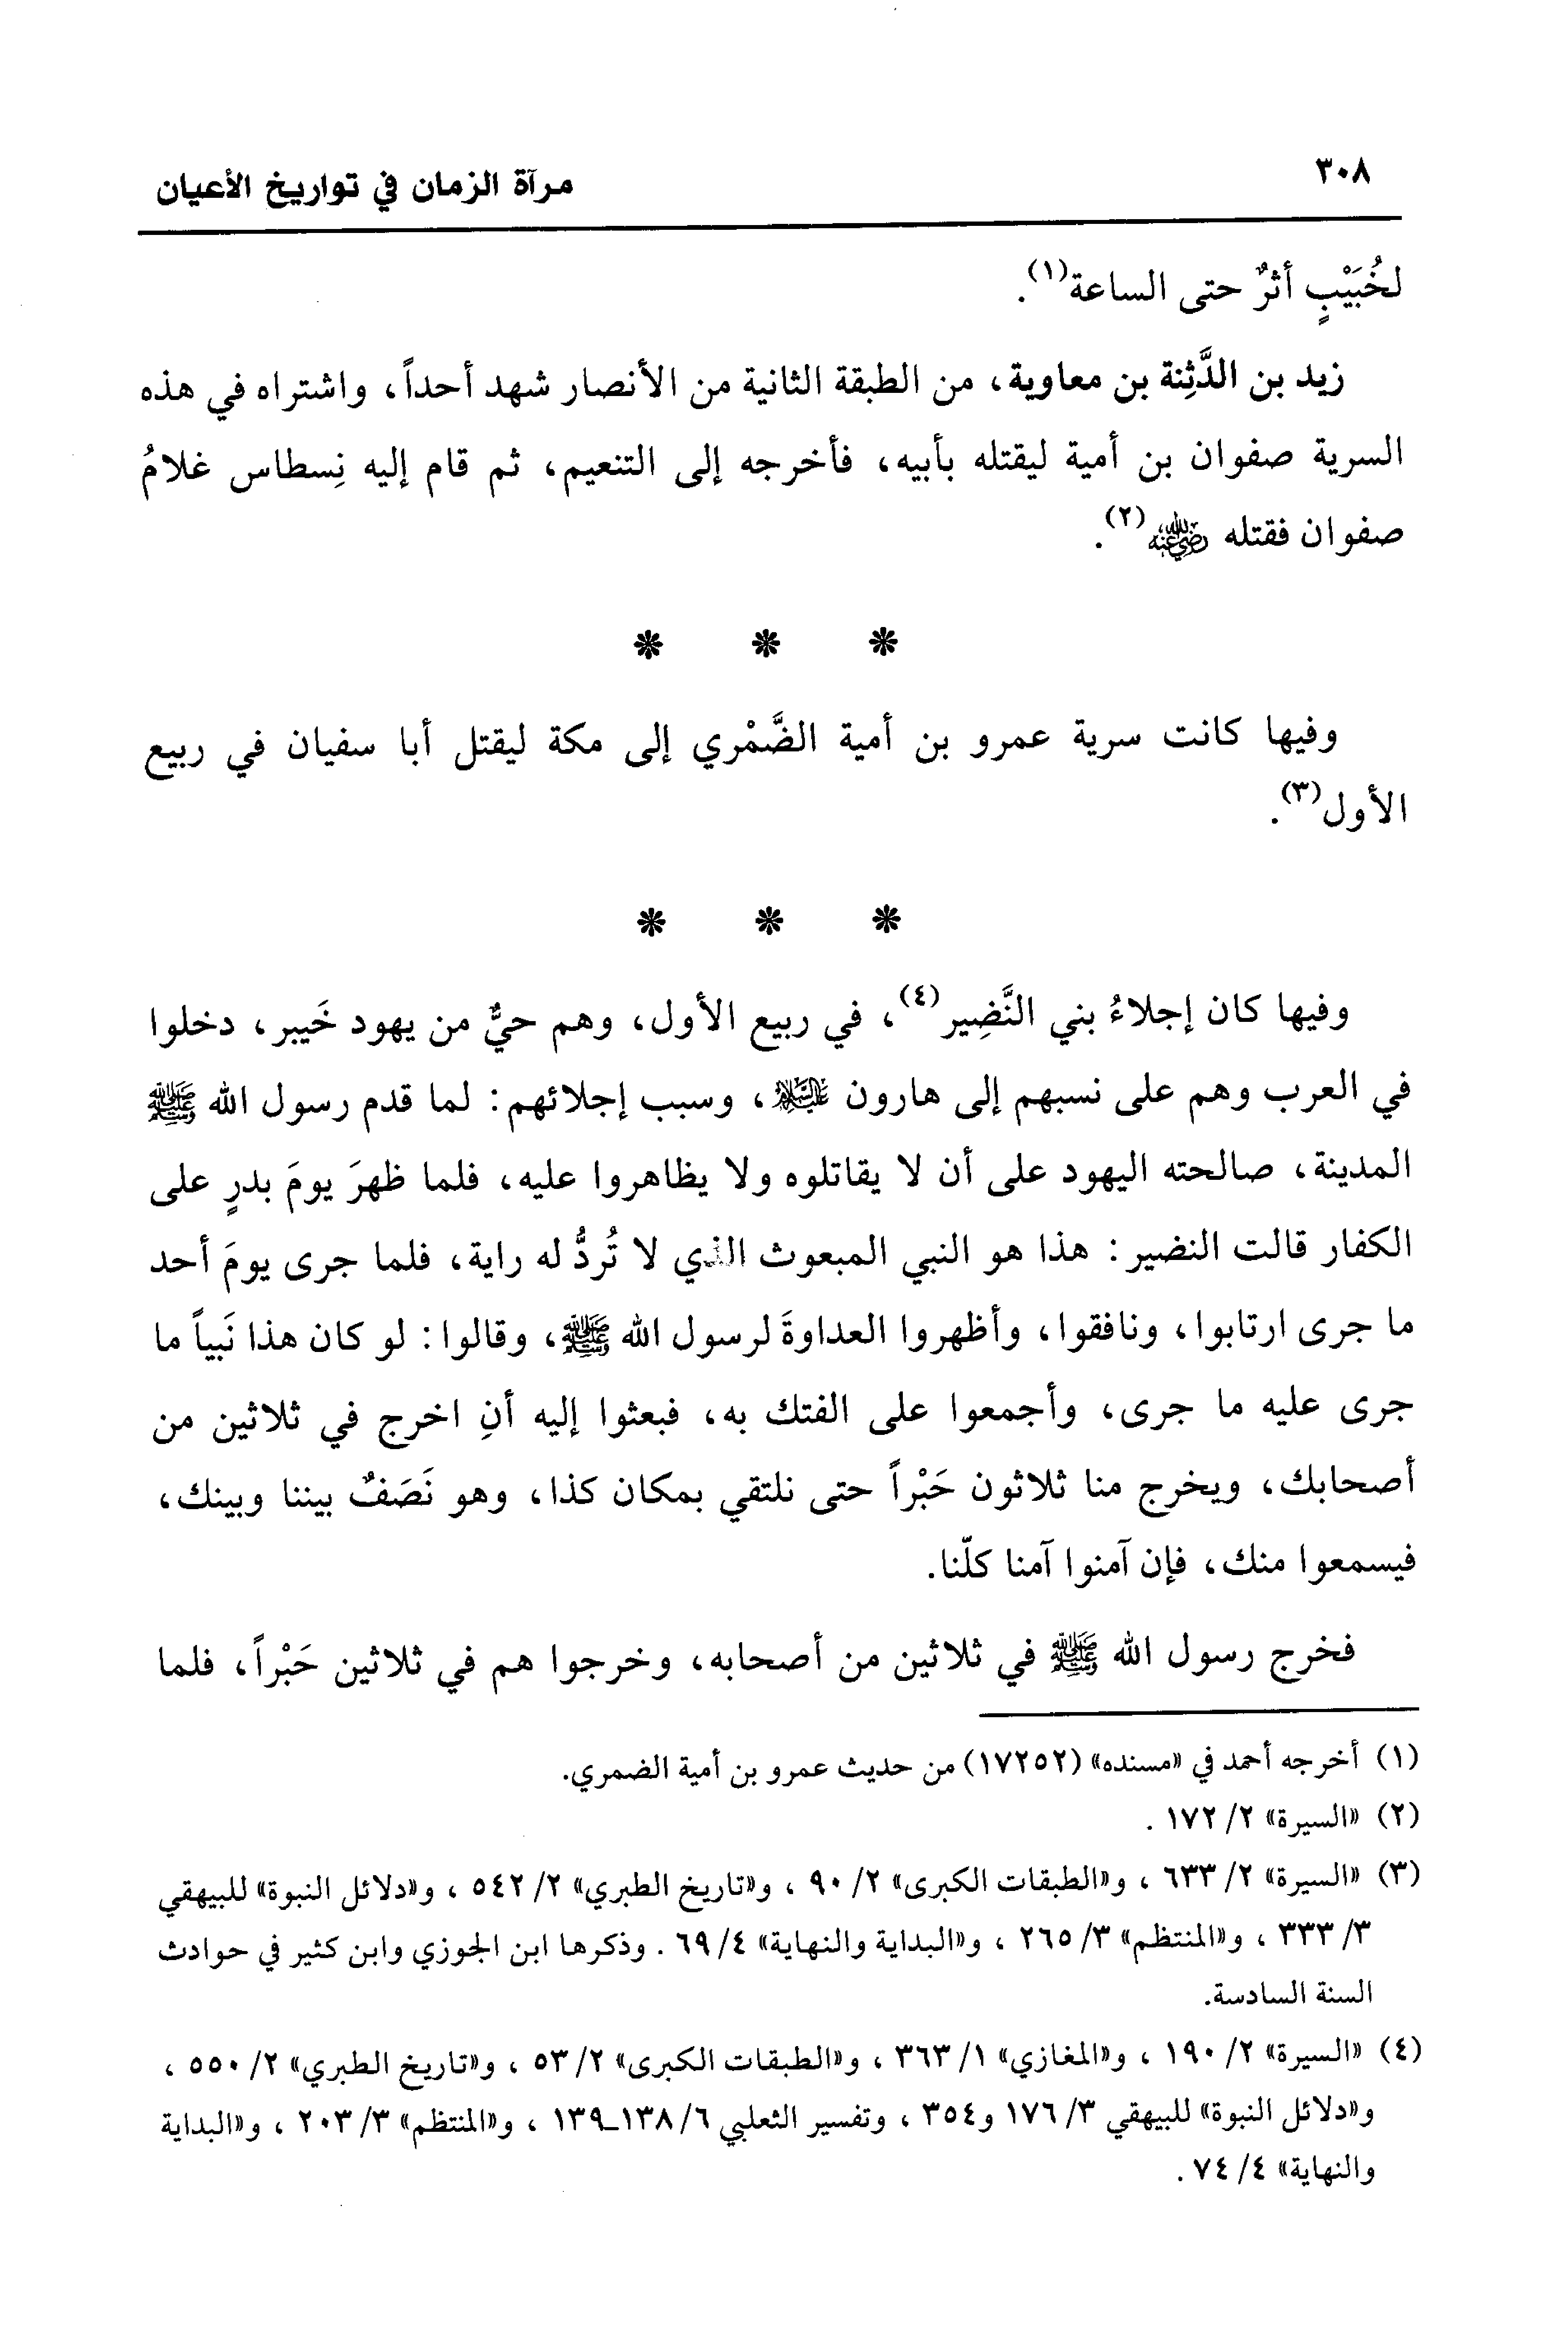 ٣٠٨
مرآة الزمان في تواريخ الأعيان
لخُبَيْبٍ أثرٌ حتى الساعة(١).
زيد بن الدَّثِنة بن معاوية، من الطبقة الثانية من الأنصار شهد أحداً، واشتراه في هذه
السرية صفوان بن أمية ليقتله بأبيه، فأخرجه إلى التنعيم، ثم قام إليه نِسطاس غلامُ
صفوان فقتله رضي الله عنه(٢).
* * *
وفيها كانت سرية عمرو بن أمية الضَّمْري إلى مكة ليقتل أبا سفيان في ربيع
الأول(٣).
* * *
وفيها كان إجلاءُ بني النَّضِير(٤)، في ربيع الأول، وهم حيٌّ من يهود خَيبر، دخلوا
في العرب وهم على نسبهم إلى هارون عليه السلام، وسبب إجلائهم: لما قدم رسول الله ﷺ
المدينة، صالحته اليهود على أن لا يقاتلوه ولا يظاهروا عليه، فلما ظهرَ يومَ بدرٍ على
الكفار قالت النضير: هذا هو النبي المبعوث الذي لا تُردُّ له راية، فلما جرى يومَ أحد
ما جرى ارتابوا، ونافقوا، وأظهروا العداوةَ لرسول الله ﷺ، وقالوا: لو كان هذا نَبياً ما
جرى عليه ما جرى، وأجمعوا على الفتك به، فبعثوا إليه أنِ اخرج في ثلاثين من
أصحابك، ويخرج منا ثلاثون حَبْراً حتى نلتقي بمكان كذا، وهو نَصَفٌ بيننا وبينك،
فيسمعوا منك، فإن آمنوا آمنا كلّنا.
فخرج رسول الله ﷺ في ثلاثين من أصحابه، وخرجوا هم في ثلاثين حَبْراً، فلما
(١) أخرجه أحمد في «مسنده» (١٧٢٥٢) من حديث عمرو بن أمية الضمري.
(٢) «السيرة» ٢/ ١٧٢ .
(٣) «السيرة» ٢/ ٦٣٣ ، و«الطبقات الكبرى» ٢/ ٩٠ ، و«تاريخ الطبري» ٢/ ٥٤٢ ، و«دلائل النبوة» للبيهقي
٣/ ٣٣٣ ، و«المنتظم» ٣/ ٢٦٥ ، و«البداية والنهاية» ٤/ ٦٩ . وذكرها ابن الجوزي وابن كثير في حوادث
السنة السادسة.
(٤) «السيرة» ٢/ ١٩٠ ، و«المغازي» ١/ ٣٦٣ ، و«الطبقات الكبرى» ٢/ ٥٣ ، و«تاريخ الطبري» ٢/ ٥٥٠ ،
و«دلائل النبوة» للبيهقي ٣/ ١٧٦ و٣٥٤ ، وتفسير الثعلبي ٦/ ١٣٨_١٣٩ ، و«المنتظم» ٣/ ٢٠٣ ، و«البداية
والنهاية» ٤/ ٧٤ .